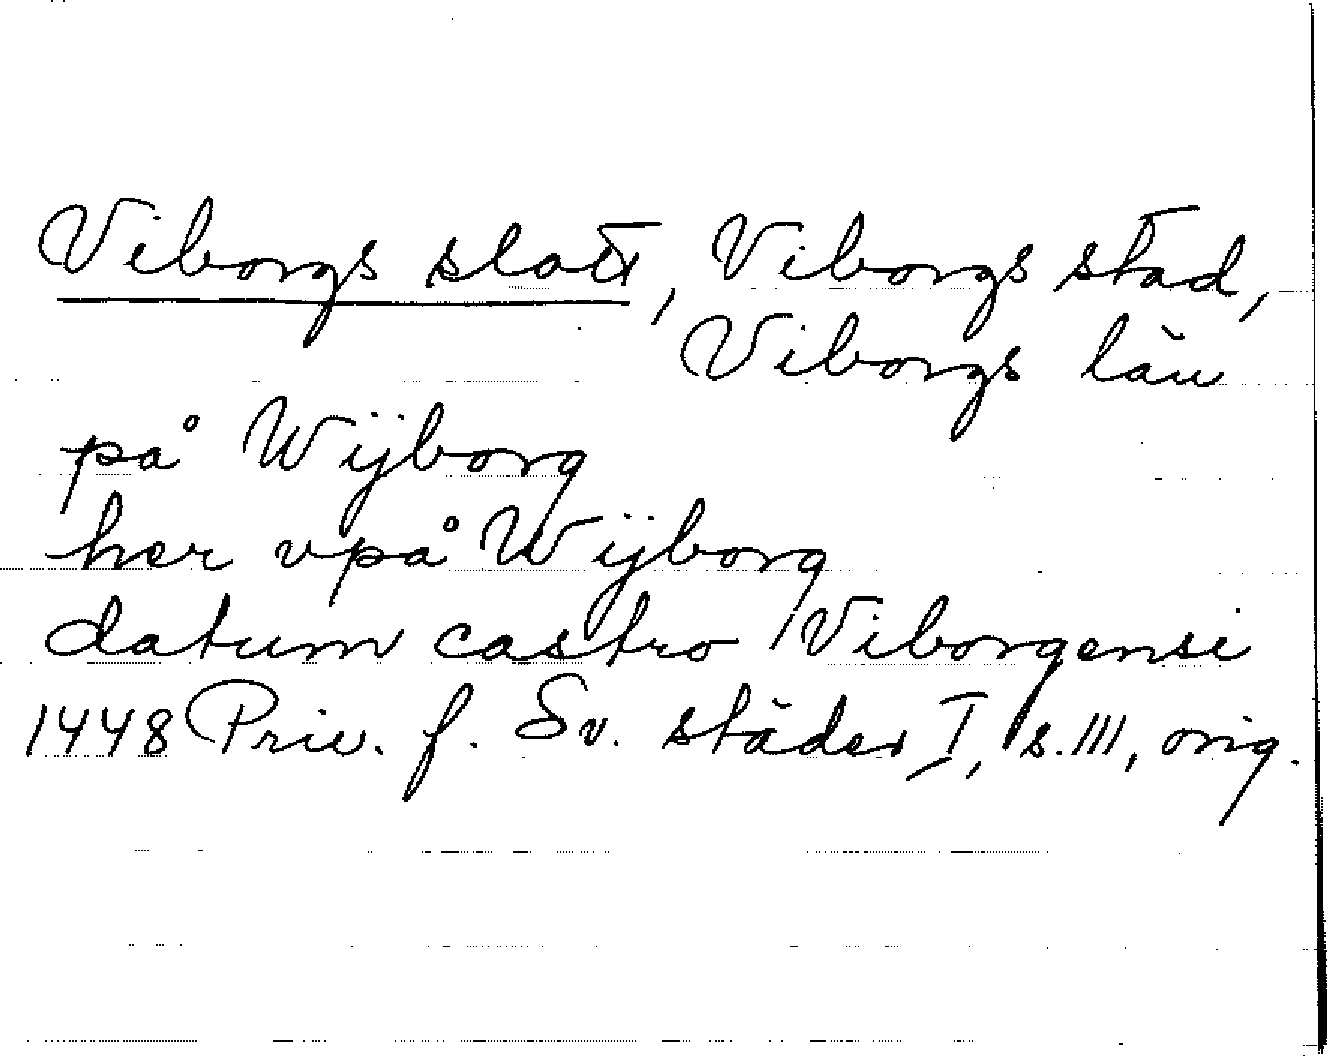 Viborgs slott, Viborgs stad,
Viborgs län
på Wijborg
her vpå Wijborg
datum castro Viborgensi
1448 Priv. f. Sv. städer I, s. 111, orig.